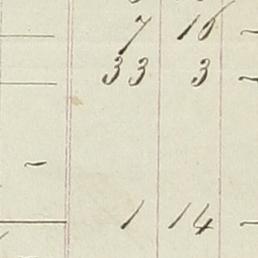 7 16 -
33 3 -
-
1 14 -